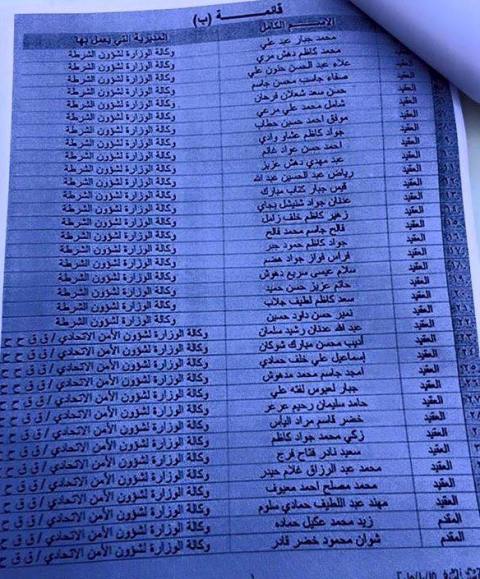 قائمـــــة (ب)
الاسم الكامل المديرية التي يعمل بها
العقيد محمد جبار عبد علي وكالة الوزارة لشؤون الشرطة
العقيد محمد كاظم دهش مري وكالة الوزارة لشؤون الشرطة
العقيد علاء عبد الحسن حنون علي وكالة الوزارة لشؤون الشرطة
العقيد صفاء جاسب محسن جاسم وكالة الوزارة لشؤون الشرطة
العقيد حسن سعد شعلان فرحان وكالة الوزارة لشؤون الشرطة
العقيد شامل محمد علي مرعي وكالة الوزارة لشؤون الشرطة
العقيد موفق احمد حسن حطاب وكالة الوزارة لشؤون الشرطة
العقيد جواد كاظم عشاو وادي وكالة الوزارة لشؤون الشرطة
العقيد احمد حسن عواد غانم وكالة الوزارة لشؤون الشرطة
العقيد عبد مهدي دهش عزيز وكالة الوزارة لشؤون الشرطة
العقيد رياض عبد الحسين عبد الله وكالة الوزارة لشؤون الشرطة
العقيد قيس جبار كتاب مبارك وكالة الوزارة لشؤون الشرطة
العقيد عدنان جواد شنيشل بجاي وكالة الوزارة لشؤون الشرطة
العقيد زهير كاظم خلف زامل وكالة الوزارة لشؤون الشرطة
العقيد فالح جاسم محمد فالح وكالة الوزارة لشؤون الشرطة
العقيد جواد كاظم حمود جبر وكالة الوزارة لشؤون الشرطة
العقيد فراس فواز جواد هضم وكالة الوزارة لشؤون الشرطة
العقيد سلام عيسى سريع دهوش وكالة الوزارة لشؤون الشرطة
العقيد حاتم عزيز حسن حميد وكالة الوزارة لشؤون الشرطة
العقيد سعد كاظم لطيف جلاب وكالة الوزارة لشؤون الشرطة
العقيد نمير حسن داود حسين وكالة الوزارة لشؤون الشرطة
العقيد عبد الله عدنان رشيد سلمان وكالة الوزارة لشؤون الأمن الاتحادي / ق ق ح ح
العقيد أديب محسن مبارك شوكان وكالة الوزارة لشؤون الأمن الاتحادي / ق ق ح ح
العقيد إسماعيل علي خلف حمادي وكالة الوزارة لشؤون الأمن الاتحادي / ق ق ح ح
العقيد أمجد جاسم محمد مدهوش وكالة الوزارة لشؤون الأمن الاتحادي / ق ق ح ح
العقيد جبار لعيوس لفته علي وكالة الوزارة لشؤون الأمن الاتحادي / ق ق ح ح
العقيد حامد سليمان رحيم عرعر وكالة الوزارة لشؤون الأمن الاتحادي / ق ق ح
العقيد خضر قاسم مراد الياس وكالة الوزارة لشؤون الأمن الاتحادي / ق ق ح
العقيد زكي محمد جواد كاظم وكالة الوزارة لشؤون الأمن الاتحادي / ق ق ح
العقيد سعيد نادر فتاح فرج وكالة الوزارة لشؤون الأمن الاتحادي / ق ق ح
العقيد محمد عبد الرزاق غلام حيدر وكالة الوزارة لشؤون الأمن الاتحادي / ق ق ح
العقيد محمد مصلح احمد معيوف وكالة الوزارة لشؤون الأمن الاتحادي / ق ق ح
العقيد مهند عبد اللطيف حمادي سلوم وكالة الوزارة لشؤون الأمن الاتحادي / ق ق ح
المقدم زيد محمد عكيل حماده وكالة الوزارة لشؤون الأمن الاتحادي / ق ق ح
المقدم شوان محمود خضر قادر وكالة الوزارة لشؤون الأمن الاتحادي / ق ق ح